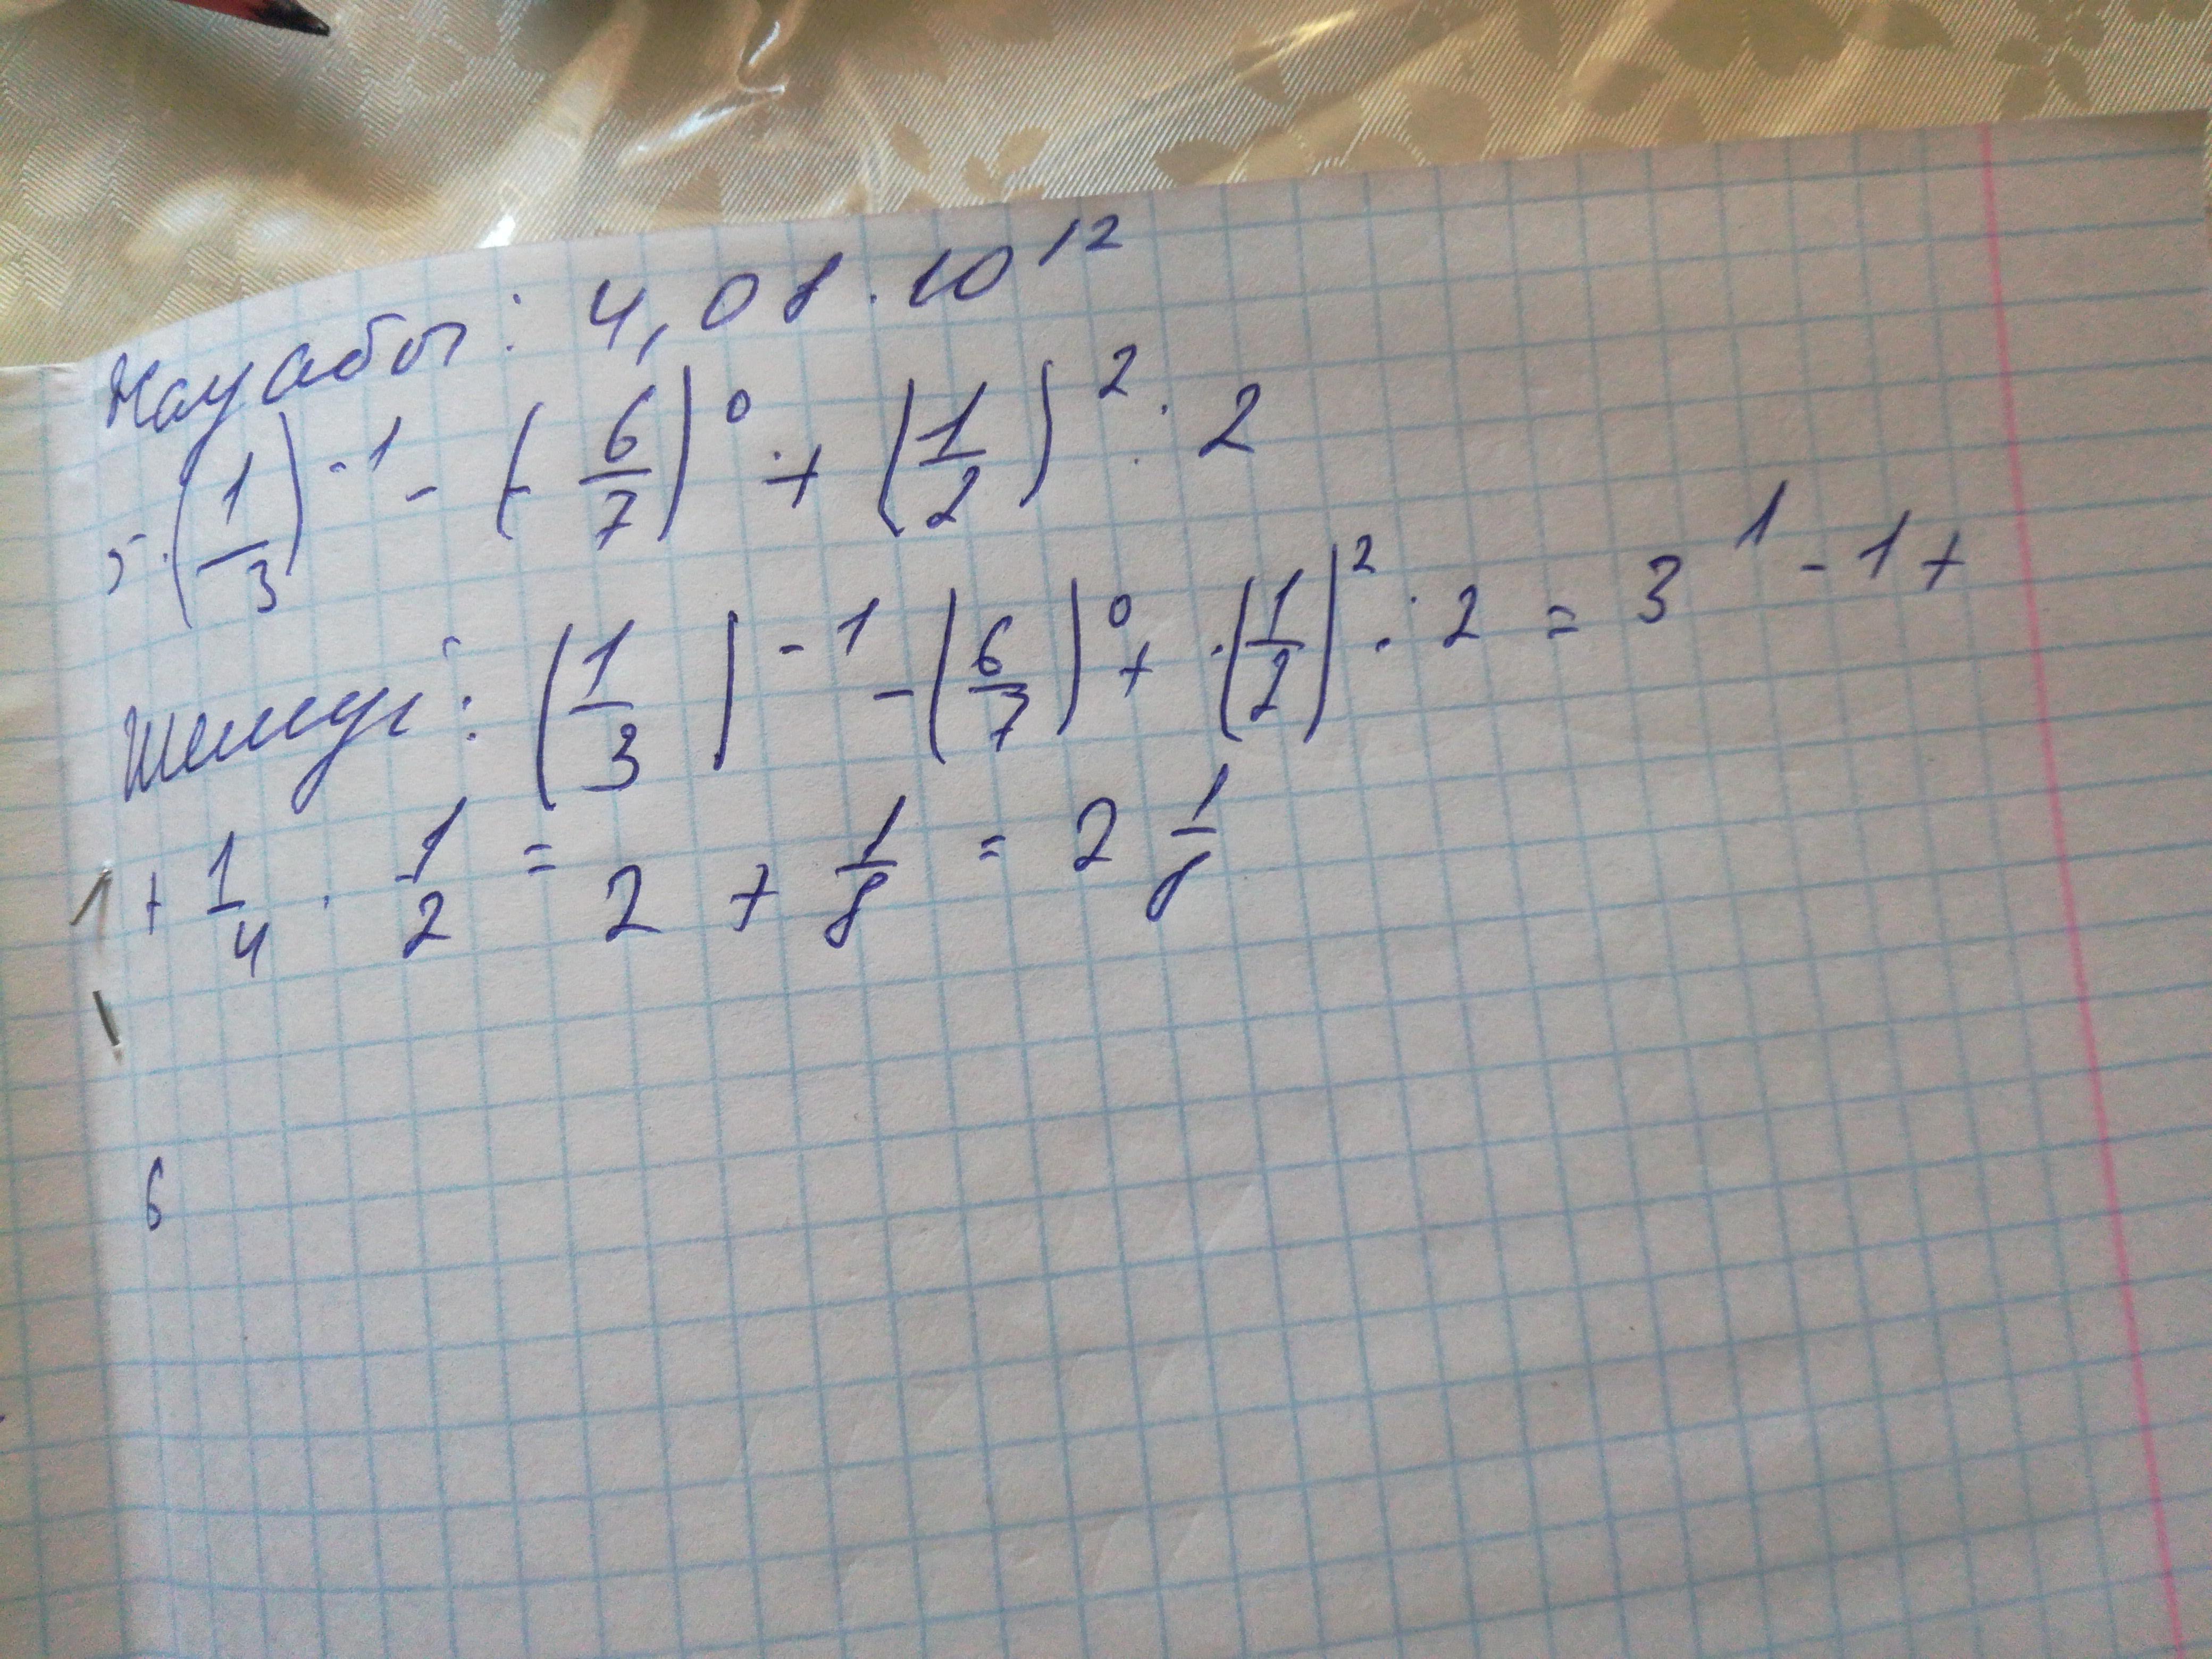 Жауабы: 4,08·10¹²
5·(1/3)⁻¹ - (-6/7)⁰ + (1/2)² : 2
Шешуі: (1/3)⁻¹ - (6/7)⁰ + (1/2)² : 2 = 3¹ - 1 +
+ 1/4 · 1/2 = 2 + 1/8 = 2 1/8
6